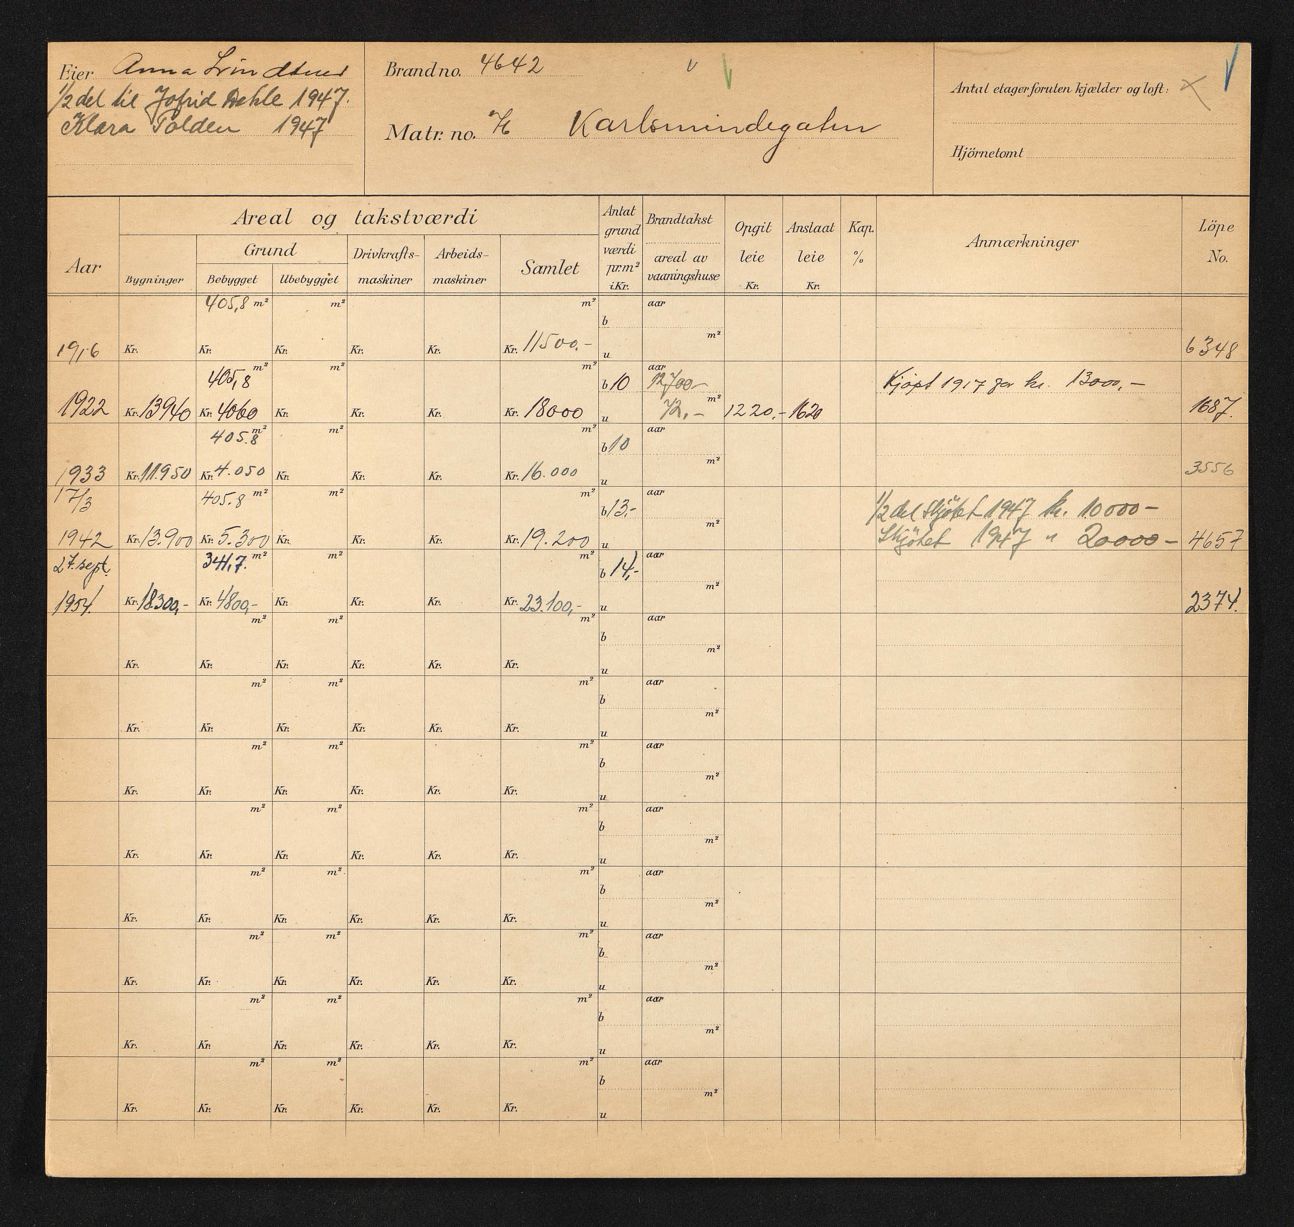 Eier Anna Lindtner
1/2 del til Jofrid Dehle 1947.
Klara Tolden 1947
Brandno. 4642
Matr. no. Karlsmindegaten
Antal etager foruten kjælder og loft:
Hjörnetomt
Areal og takstværdi
Aar
Bygninger
Grund
Bebygget
Ubebygget
Drivkraftsmaskiner
Arbeidsmaskiner
Samlet
Antat grundværdi pr. m² i Kr.
Brandtakst
areal av vaaningshuse
Opgit leie Kr.
Anslaat leie Kr.
Kap. %
Anmærkninger
Löpe No.
405,8 m² m² m² b aar
1916 Kr. Kr. Kr. Kr. Kr. Kr. 11500,- u m² 6348
405,8 m² m² m² b 10 aar 12700 Kjöpt 1917 for kr. 13000,-
1922 Kr. 13940 Kr. 4060 Kr. Kr. Kr. Kr. 18000 u 72,- m² 1220,- 1620 1687.
405.8 m² m² m² b 10 aar
1933 Kr. 11.950 Kr. 4.050 Kr. Kr. Kr. Kr. 16.000 u m² 3556
17/3 405.8 m² m² m² b 13,- aar 1/2 del Skjötet 1947 kr. 10000-
1942 Kr. 13.900 Kr. 5.300 Kr. Kr. Kr. Kr. 19.200 u m² Skjötet 1947 " 20000- 4657
27. sept. 341,7. m² m² m² b 14,- aar
1954 Kr. 18300,- Kr. 4800,- Kr. Kr. Kr. Kr. 23.100,- u m² 2374.
m² m² m² b aar
Kr. Kr. Kr. Kr. Kr. Kr. u m²
m² m² m² b aar
Kr. Kr. Kr. Kr. Kr. Kr. u m²
m² m² m² b aar
Kr. Kr. Kr. Kr. Kr. Kr. u m²
m² m² m² b aar
Kr. Kr. Kr. Kr. Kr. Kr. u m²
m² m² m² b aar
Kr. Kr. Kr. Kr. Kr. Kr. u m²
m² m² m² b aar
Kr. Kr. Kr. Kr. Kr. Kr. u m²
m² m² m² b aar
Kr. Kr. Kr. Kr. Kr. Kr. u m²
m² m² m² b aar
Kr. Kr. Kr. Kr. Kr. Kr. u m²